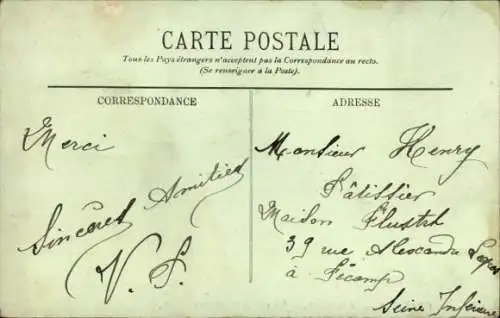 CARTE POSTALE
Tous les Pays étrangers n'acceptent pas la Correspondance au recto.
(Se renseigner à la Poste).
CORRESPONDANCE
Merci
Sincères Amitiés
V. S.
ADRESSE
Monsieur Henry
Pâtissier
Maison
39 rue Alexandre
à Fécamp
Seine Inférieure